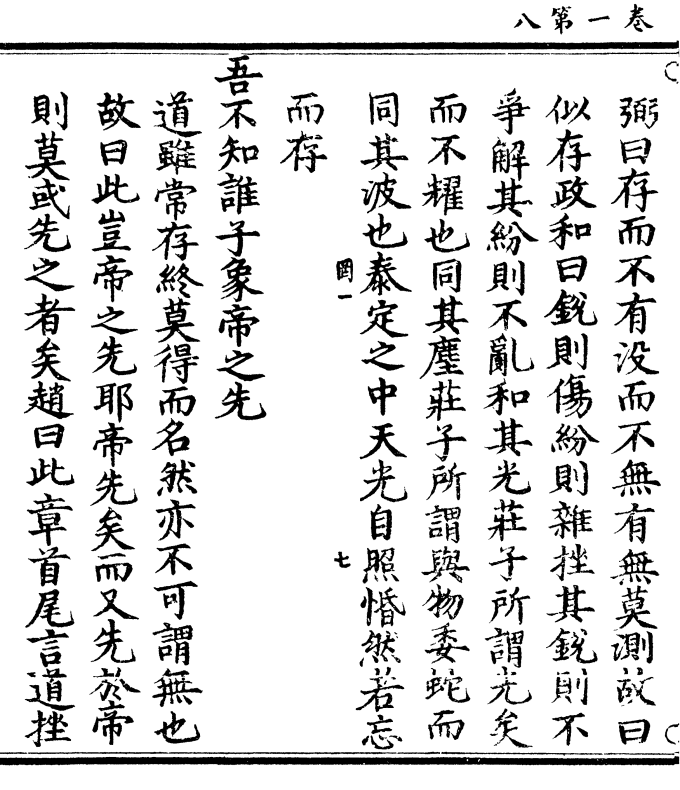 卷一第八
弼曰存而不有没而不無有無莫測故曰
似存政和曰銳則傷紛則雜挫其銳則不
爭解其紛則不亂和其光莊子所謂光矣
而不耀也同其塵莊子所謂與物委蛇而
同其波也泰定之中天光自照惛然若忘
罔一
七
而存
吾不知誰子象帝之先
道雖常存終莫得而名然亦不可謂無也
故曰此豈帝之先耶帝先矣而又先於帝
則莫或先之者矣趙曰此章首尾言道挫